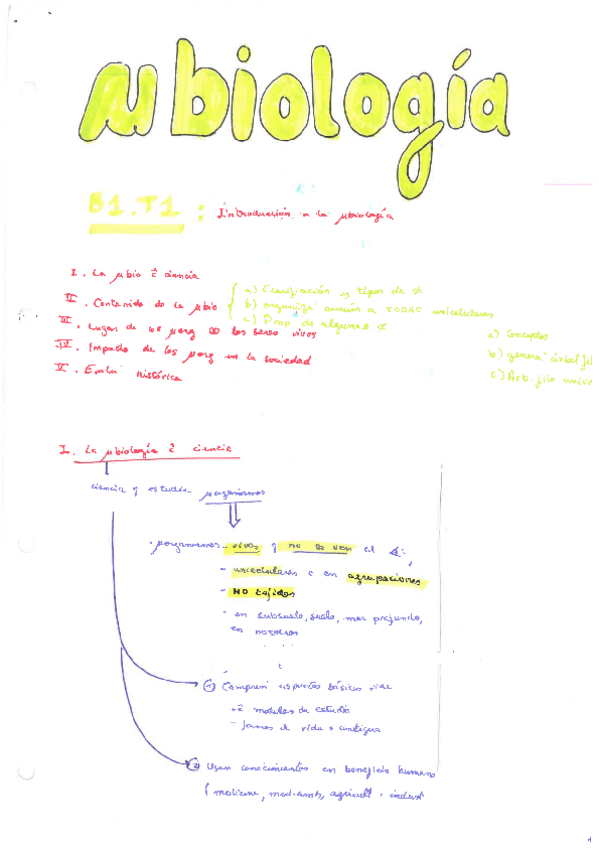 µbiología
B1.T1 : Introducción a la µbiología
I. La µbio ĉ ciencia
II. Contenido de la µbio
a) Clasificación y tipos de
b) común a TODAS unicelulares
c) Prop de algunas
III. Lugar de los µorg los seres vivos
a) Conceptos
IV. Impacto de los µorg en la sociedad
b)
V. histórica
c)
I. La µbiología ĉ ciencia
ciencia q estudia µorganismos
µorganismos - vivos y no se ven al
- unicelulares o en agrupaciones
- NO tejidos
- en subsuelo, suelo, mar profundo,
en nosotros
1 aspectos básicos vida
+ĉ modelos de estudio
- formas d vida + antigua
2 Usan conocimientos en beneficio humano
(medicina,